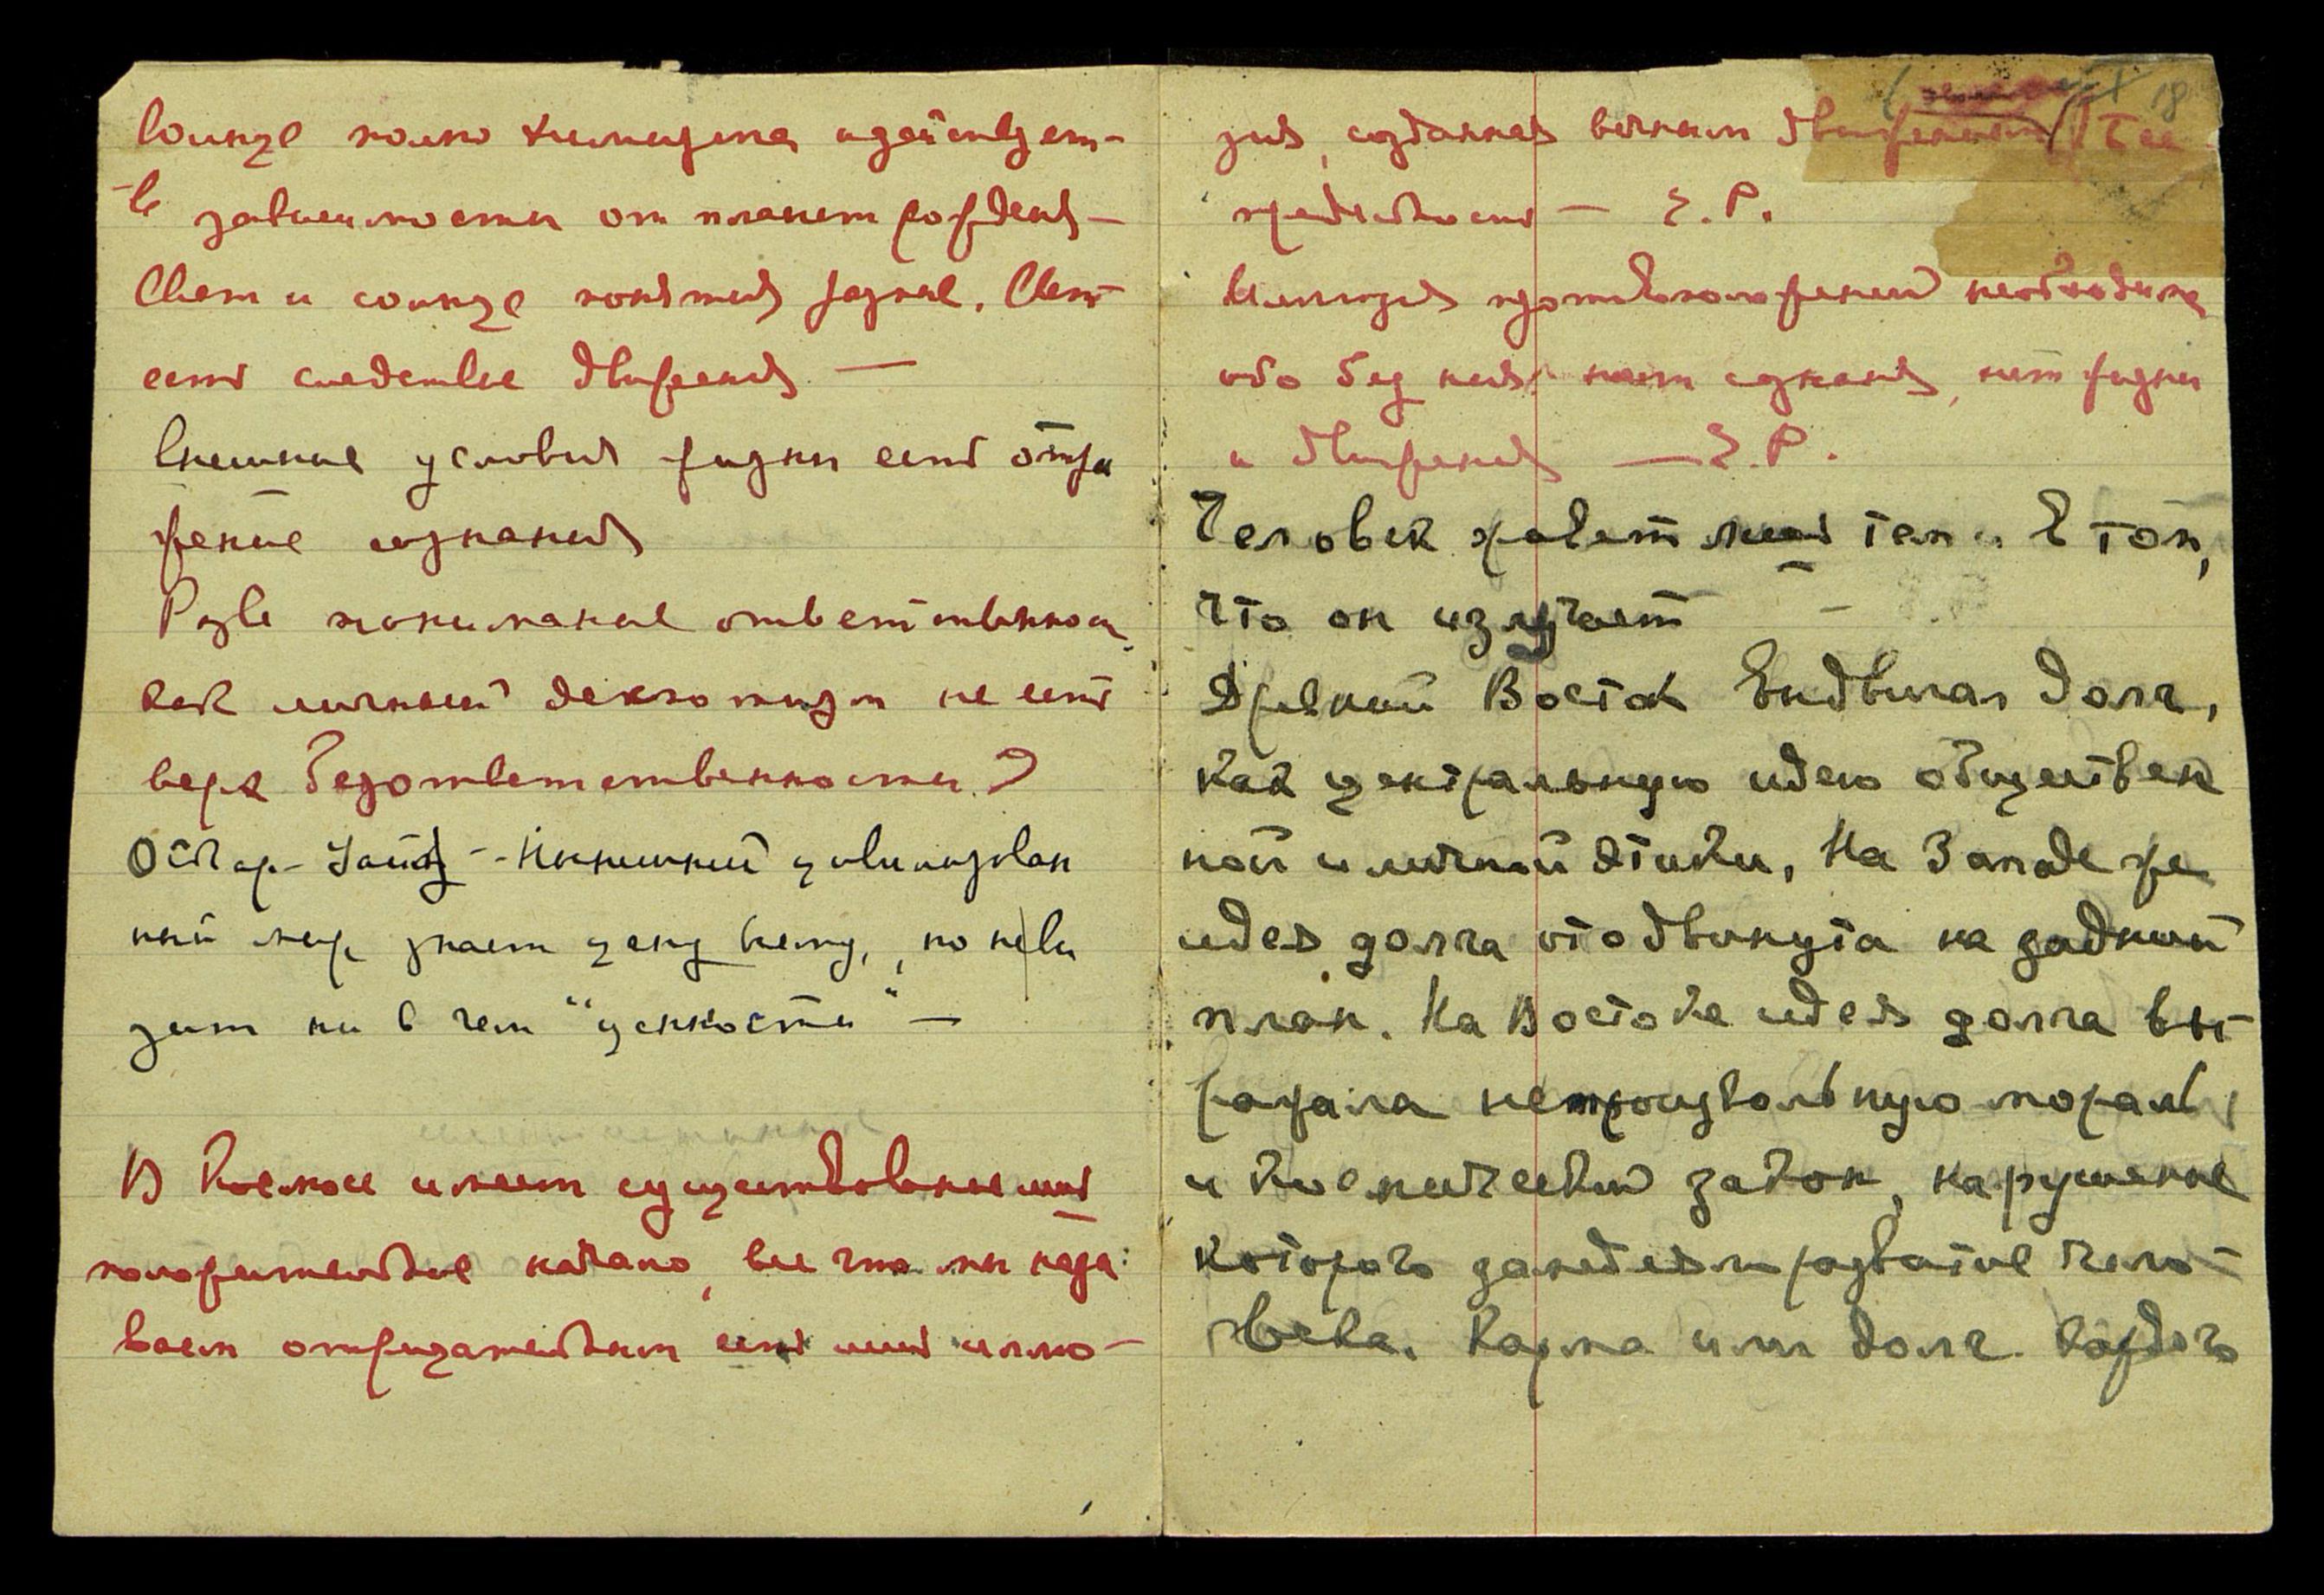 Солнце полно химизма и действует
в зависимости от планет рождения —
Свет и солнце понятия разные. Свет
есть следствие движения —
Внешние условия жизни есть отра
жение сознания
Разве понимание ответственности
как личный деспотизм не есть
вера безответственности?
Оскар-Уайльд — Нынешний цивилизован
ный мир знает цену всему, но не ви
дит ни в чем "ценности" —
В Космосе имеет существование лишь
положительное начало, все что мы назы
ваем отрицательным есть лишь иллю-
зия, созданная вечным движением Бес
предельность — Е. Р.
Иллюзия противоположений необходима
ибо без них нет сознания, нет жизни
и движения — Е. Р.
Человек живет лишь тем и в том,
что он излучает
Древний Восток выдвигал долг,
как центральную идею обществен
ной и личной этики, На Западе же
идея долга отодвинута на задний
план. На Востоке идея долга вы-
ражала непроизвольную мораль,
и космический закон, нарушение
которого замедлял развитие чело-
века. Карма или долг каждого
18